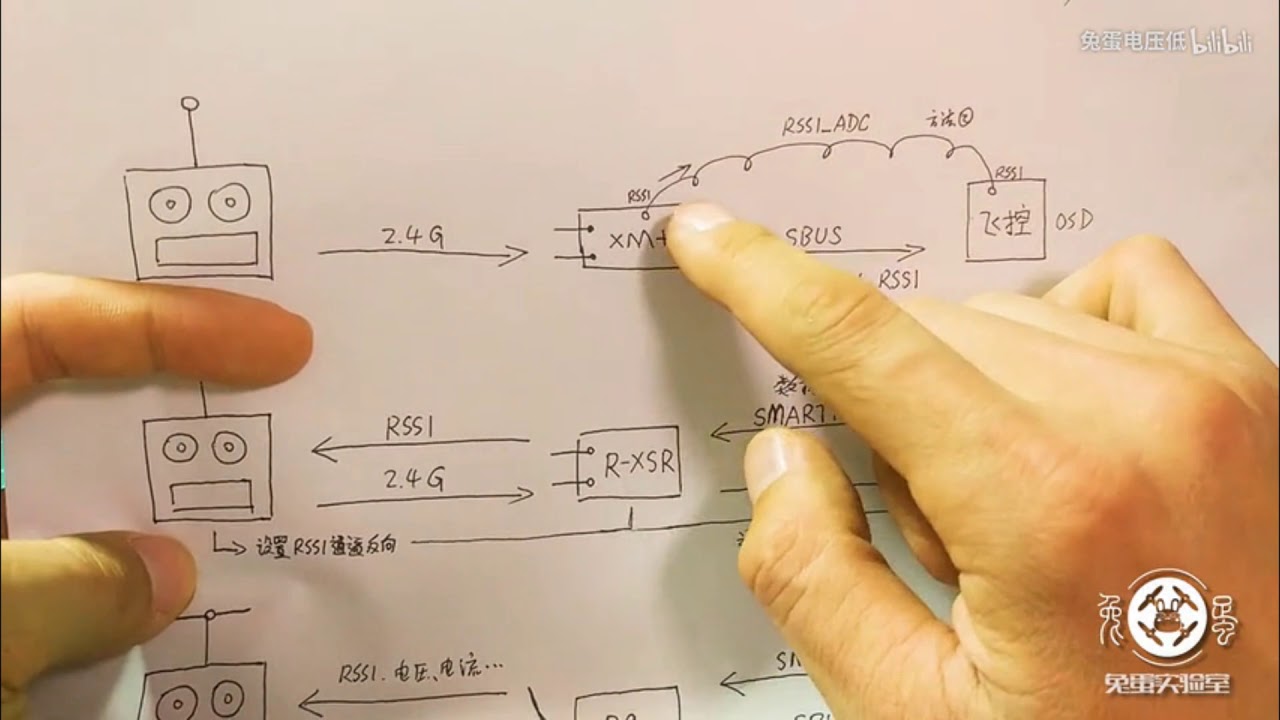 兔蛋电压低 bilibili
RSSI_ADC 方法②
RSSI
RSSI
2.4G
XM+
SBUS
飞控
OSD
RSSI
RSSI
2.4G
R-XSR
SMART
设置RSSI通道反向
RSSI.电压、电流…
兔 蛋
兔蛋实验室